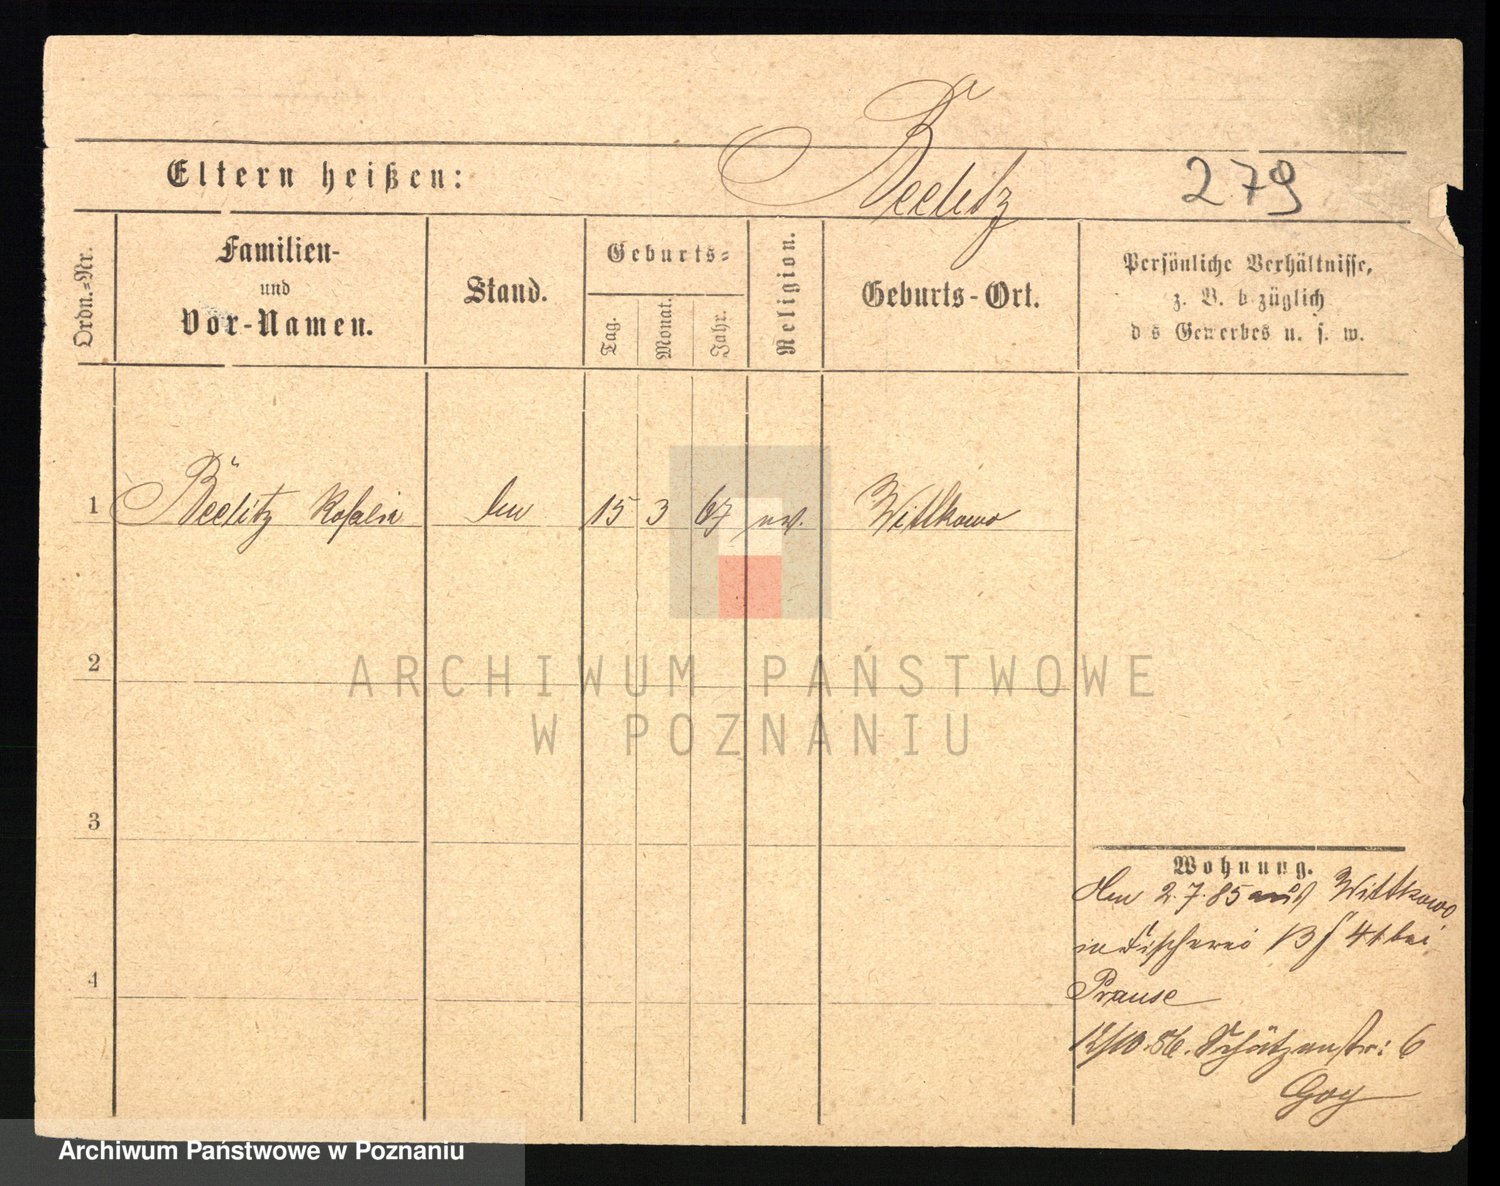 Beelitz
279
Eltern heißen:
Ordn.-Nr.
Familien-
und
Vor-Namen.
Stand.
Geburts-
Tag.
Monat.
Jahr.
Religion.
Geburts-Ort.
Persönliche Verhältnisse,
z. B. b züglich
d s Gewerbes u. s. w.
1 Beelitz Rosalie 15 3 67 Wittkowo
2
3
4
ARCHIWUM PAŃSTWOWE
W POZNANIU
Wohnung.
2.7.85 aus Wittkowo
in Fischerei 13 f 41 bei
Prause
12/10.86. Schützenstr: 6
Goy
Archiwum Państwowe w Poznaniu